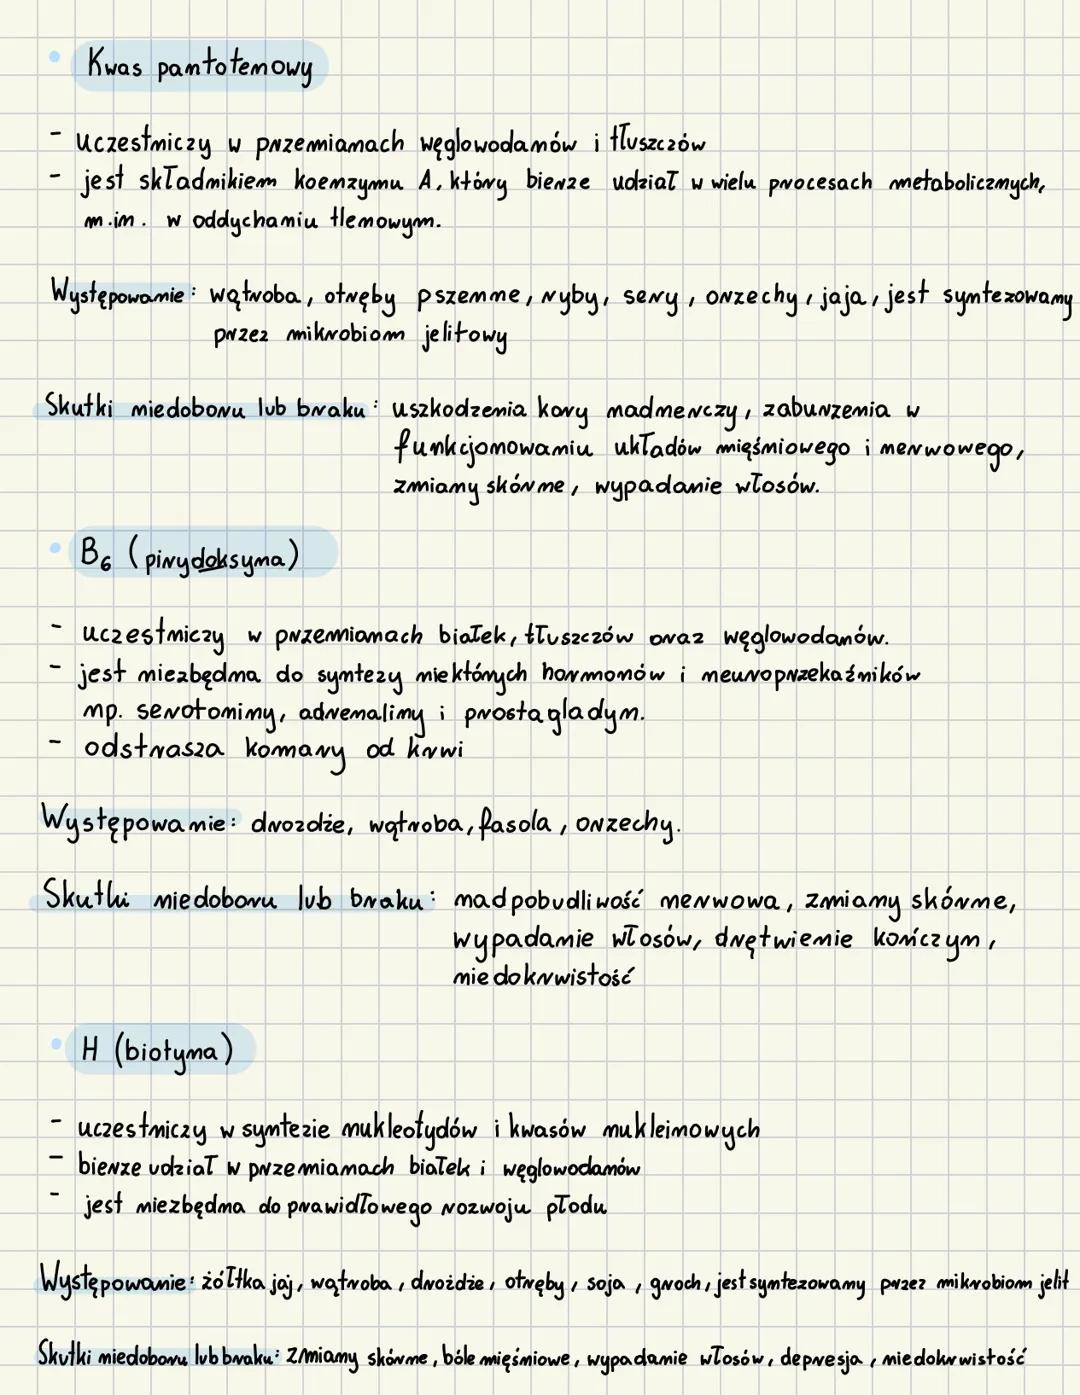 • Kwas pantotenowy
- uczestniczy w przemianach węglowodanów i tłuszczów
- jest składnikiem koenzymu A, który bierze udział w wielu procesach metabolicznych,
m.in. w oddychaniu tlenowym.
Występowanie: wątroba, otręby pszenne, ryby, sery, orzechy, jaja, jest syntezowany
przez mikrobiom jelitowy
Skutki niedoboru lub braku: uszkodzenia kory nadnerczy, zaburzenia w
funkcjonowaniu układów mięśniowego i nerwowego,
zmiany skórne, wypadanie włosów.
• B6 (pirydoksyna)
- uczestniczy w przemianach białek, tłuszczów oraz węglowodanów.
- jest niezbędna do syntezy niektórych hormonów i neuroprzekaźników
np. serotoniny, adrenaliny i prostagladyn.
- odstrasza komary od krwi
Występowanie: drożdże, wątroba, fasola, orzechy.
Skutki niedoboru lub braku: nadpobudliwość nerwowa, zmiany skórne,
wypadanie włosów, drętwienie kończyn,
niedokrwistość
• H (biotyna)
- uczestniczy w syntezie nukleotydów i kwasów nukleinowych
- bierze udział w przemianach białek i węglowodanów
- jest niezbędna do prawidłowego rozwoju płodu
Występowanie: żółtka jaj, wątroba, drożdże, otręby, soja, groch, jest syntezowany przez mikrobiom jelit
Skutki niedoboru lub braku: zmiany skórne, bóle mięśniowe, wypadanie włosów, depresja, niedokrwistość